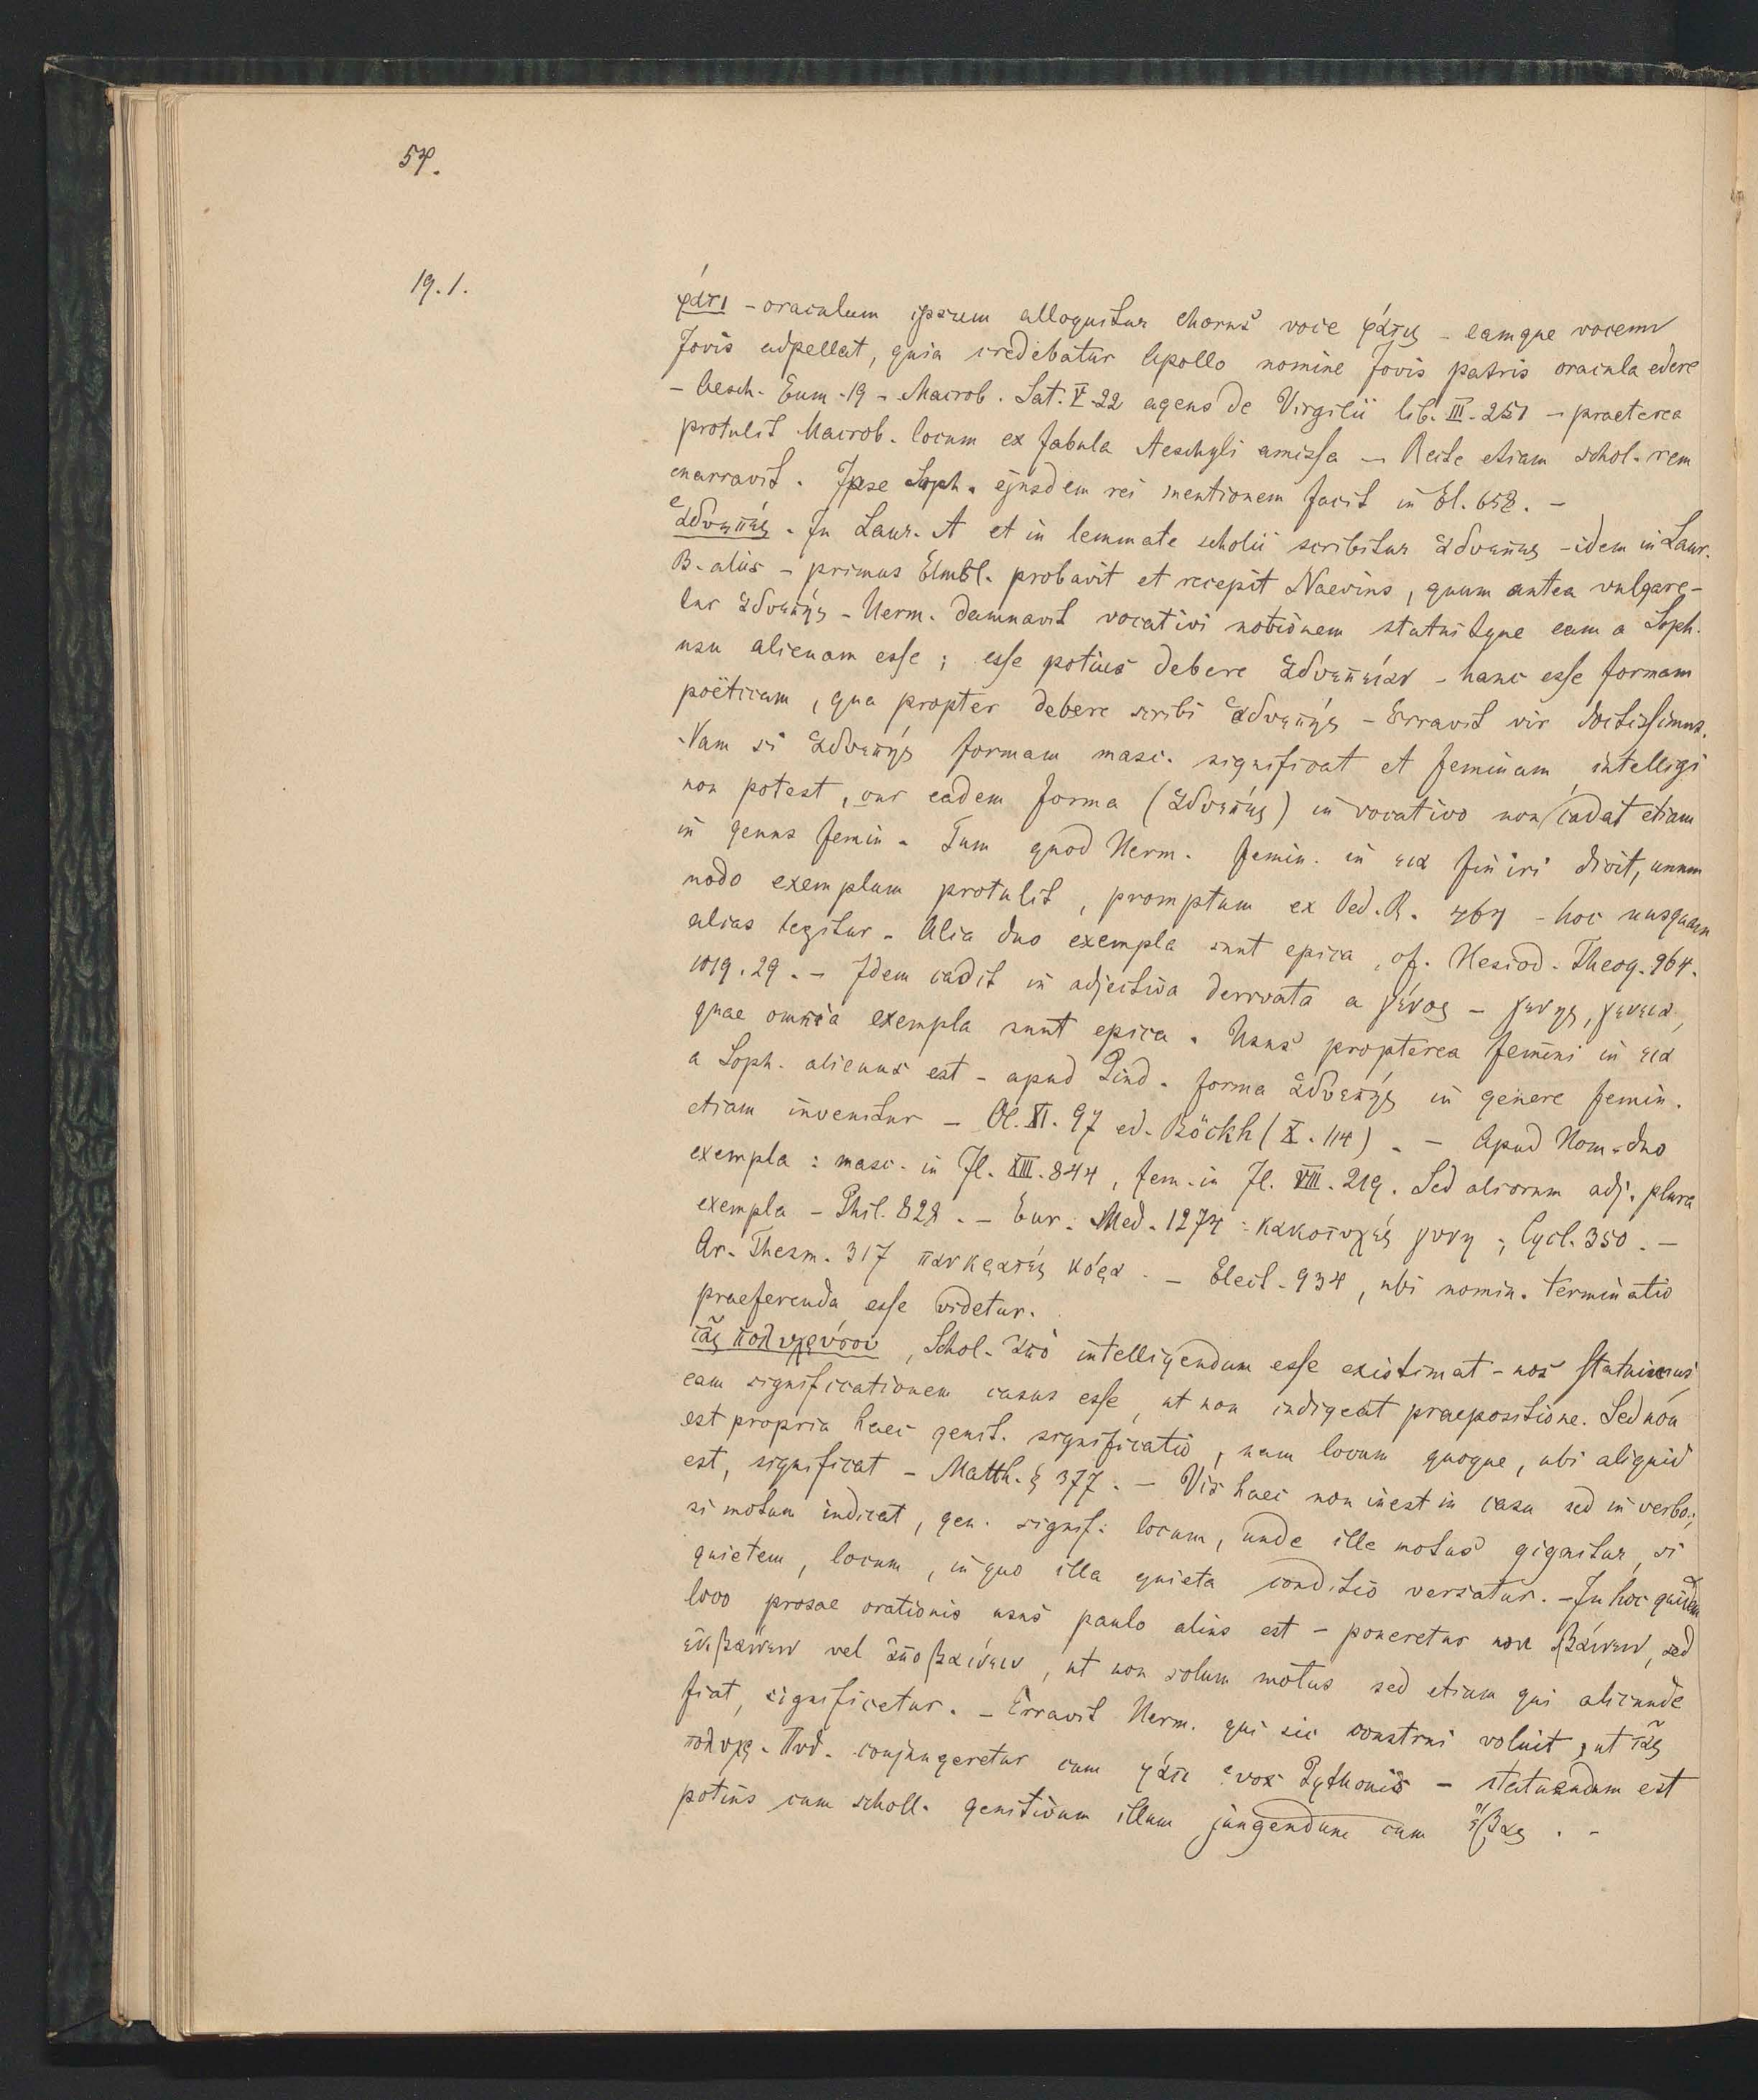 54.
19. 1.
φάτι - oraculum ipsum alloquitur chorus voce φάτις - eamque vocem
Jovis adpellat, quia credebatur Apollo nomine Jovis patris oracula edere
- Aesch. Eum. 19 - Macrob. Sat. V. 22 agens de Virgilii lib. III. 251 - praeterea
protulit Macrob. locum ex fabula Aeschyli amissa - Recte etiam schol. rem
enarravit. Ipse Soph. ejusdem rei mentionem facit in El. 658. -
ἁδυεπές. In Laur. A et in lemmate scholii scribitur ἁδυεπες - idem in Laur.
B. aliis - primus Elmsl. probavit et recepit Naevius, quum antea vulgare-
tur ἁδυεπής - Herm. damnavit vocativi notionem statuitque eam a Soph.
usu alienam esse; esse potius debere ἁδυέπειαν - hanc esse formam
poëticam, qua propter debere scribi ἁδυεπής - Erravit vir doctissimus.
Nam si ἁδυεπής formam masc. significat et feminam intelligi
non potest, cur eadem forma (ἁδυεπές) in vocativo non cadat etiam
in genus femin. Tum quod Herm. femin. in εια finiri dicit, unum
modo exemplum protulit, promptum ex Oed. R. 464 - hoc nusquam
alias legitur - Alia duo exempla sunt epica, cf. Hesiod. Theog. 964.
1019. 29. - Idem cadit in adjectiva derivata a γένος - γενης, γενεια,
quae omnia exempla sunt epica. Usus propterea femini in εια
a Soph. alienus est - apud Pind. forma ἁδυεπής in genere femin.
etiam invenitur - Ol. XI. 97 ed. Böckh (X. 114). - Apud Hom. duo
exempla: masc. in Il. XIII. 844, fem. in Il. VIII. 219. Sed aliorum adj. plura
exempla - Phil. 828. - Eur. Med. 1274: κακοτυχές γυνη; Cycl. 350. -
Ar. Thesm. 317 πανκρατές κόρα. - Elect. 934, ubi nomin. terminatio
praeferenda esse videtur.
τᾶς πολυχρύσου, Schol. ἀπὸ intelligendum esse existimat - nos statuimus
eam significationem casus esse, ut non indigeat praepositione. Sed non
est propria haec genit. significatio, nam locum quoque, ubi aliquid
est, significat - Matth. § 377. - Vis haec non inest in casu sed in verbo;
si motum indicat, gen. signif. locum, unde ille motus gignitur, si
quietem, locum, in quo illa quieta conditio versatur. - In hoc quidem
loco prosae orationis usus paulo alius est - poneretur non βαίνειν, sed
ἐκβαίνειν vel ἀποβαίνειν, ut non solum motus sed etiam qui alicunde
fiat, significetur. - Erravit Herm. qui sic construi voluit, ut τᾶς
πολυχρ. Πυθ. conjungeretur cum φάτι: vox Pythonis - statuendum est
potius cum scholl. genitivum illum jungendum cum ἔβας. -